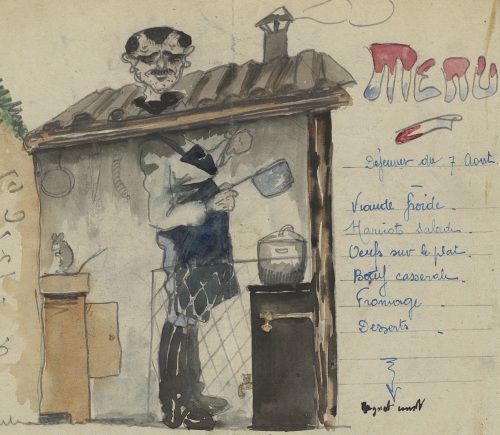 MENU
Déjeuner du 7 Aout
Viande froide.
Haricots salade.
Oeufs sur le plat.
Boeuf casserole.
Fromage.
Desserts.